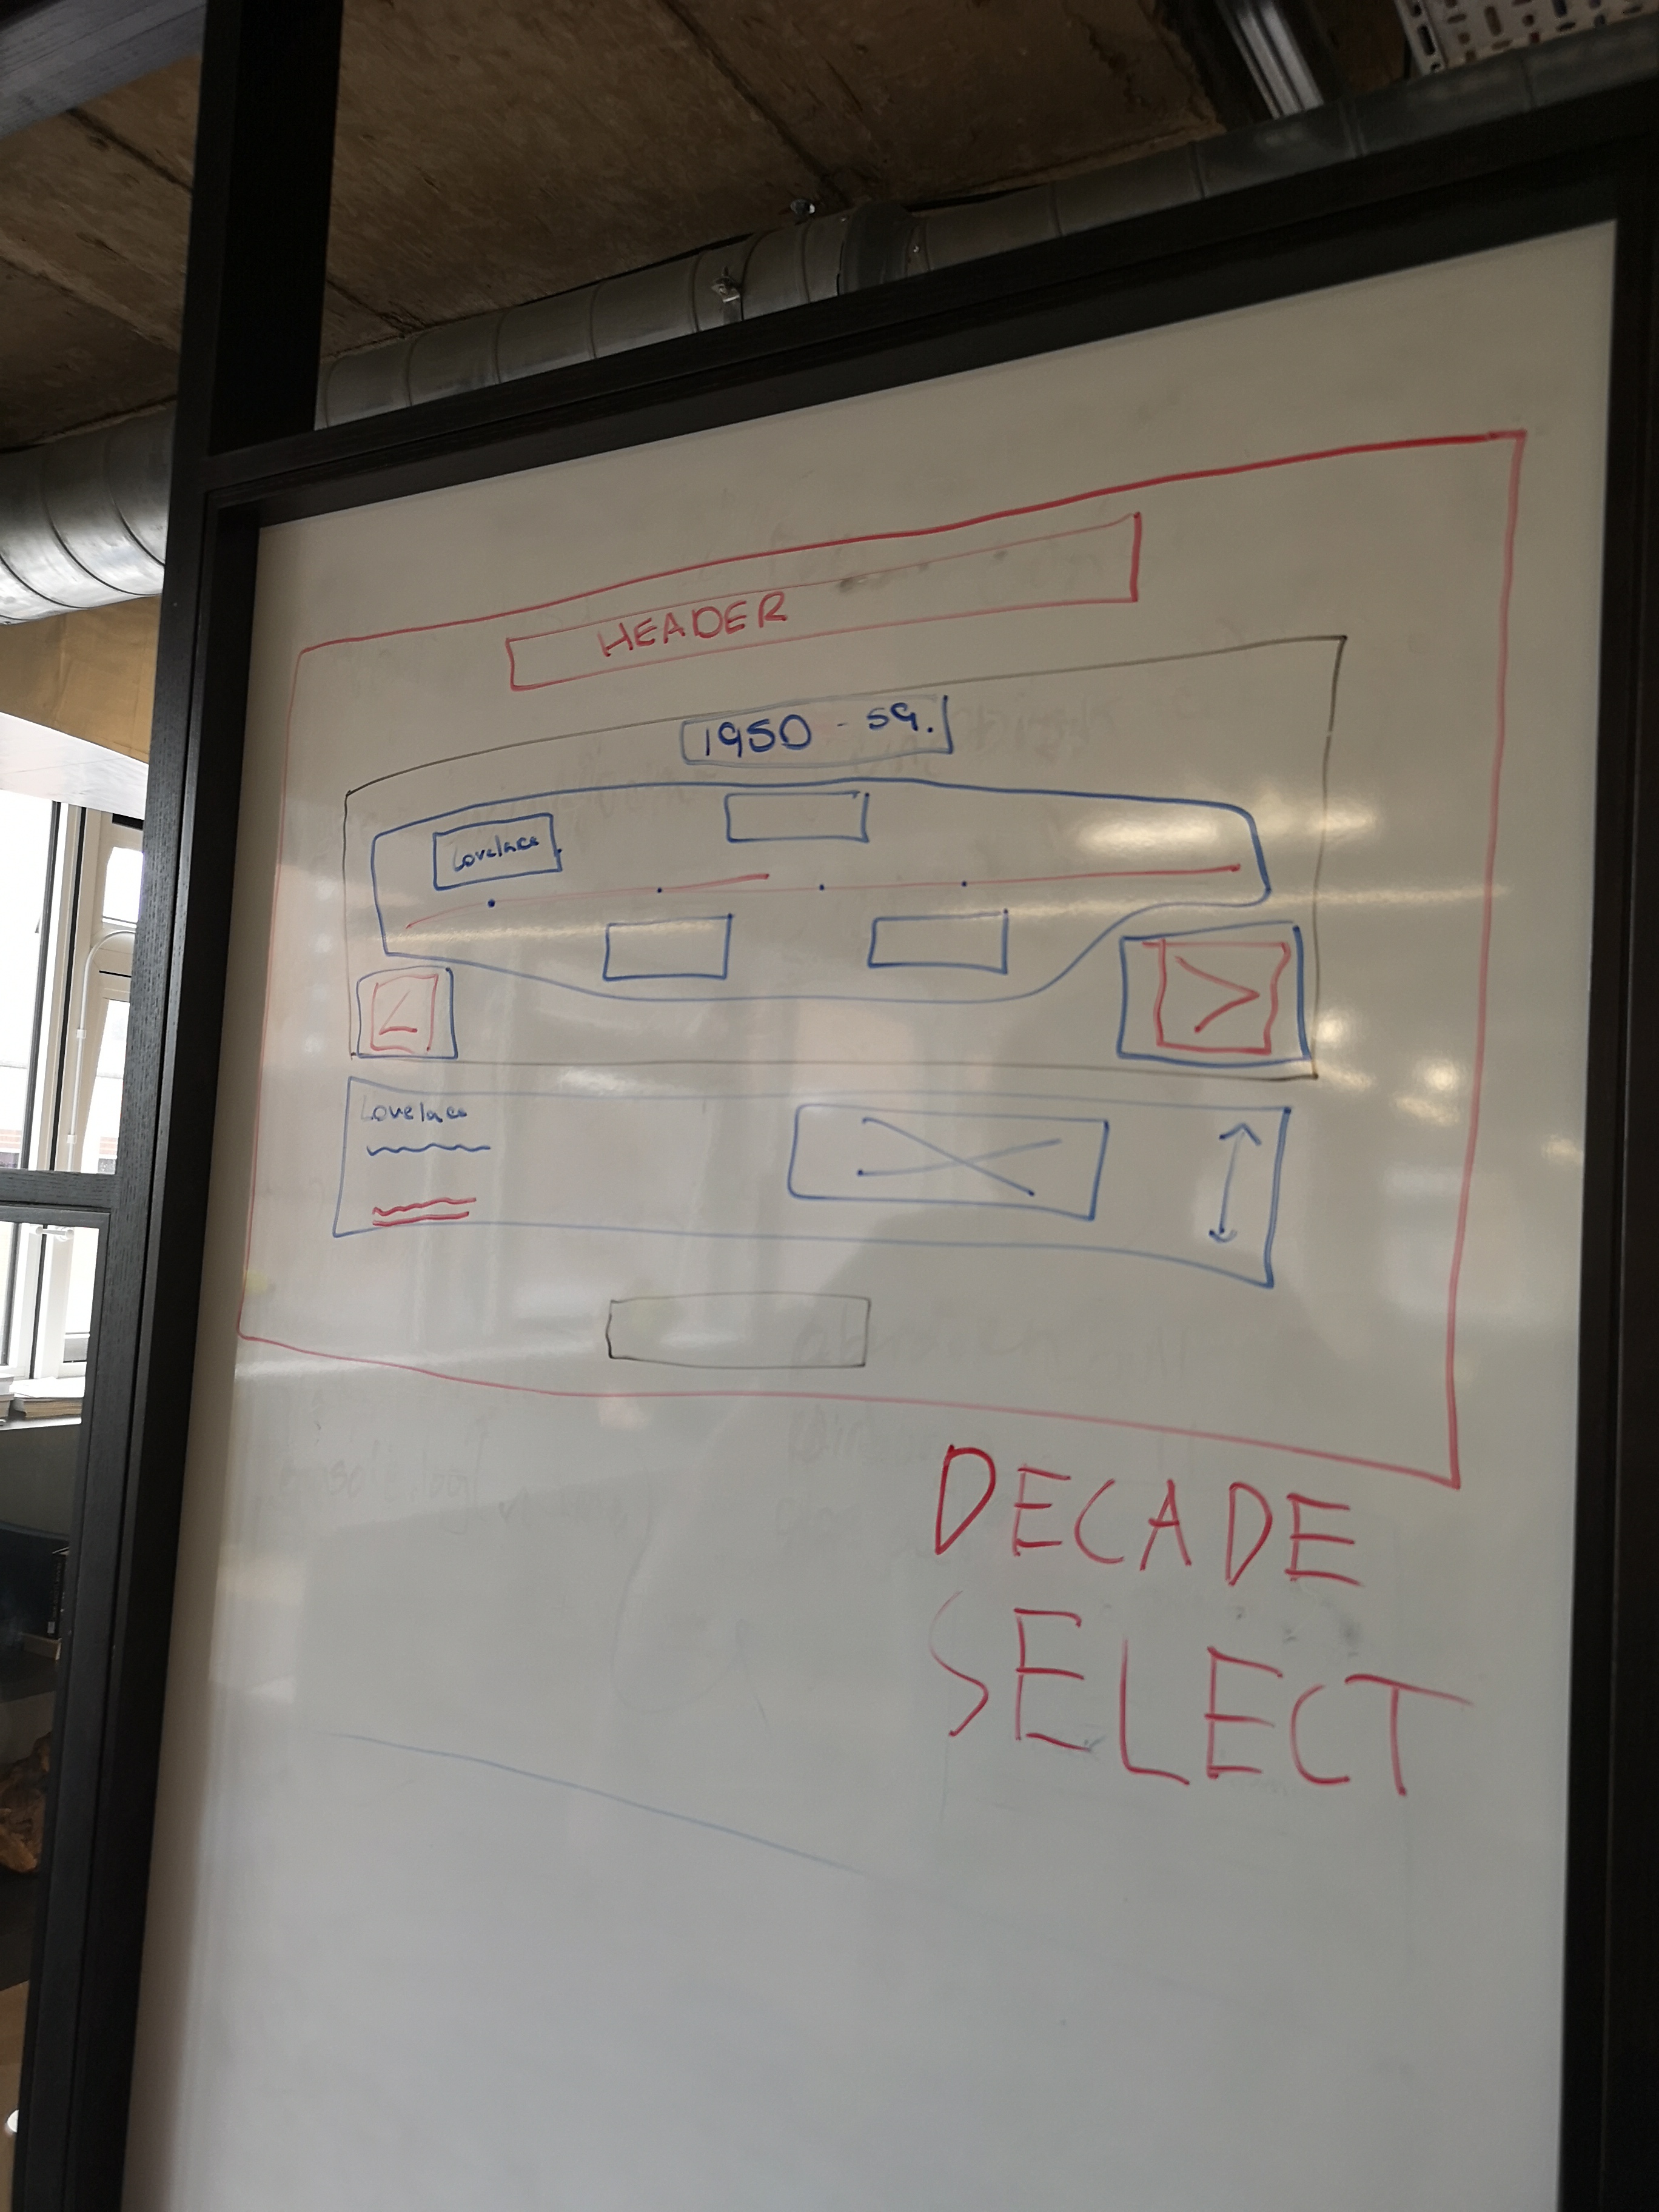 HEADER
1950 - 59.
Lovelace
<
>
Lovelace
DECADE
SELECT